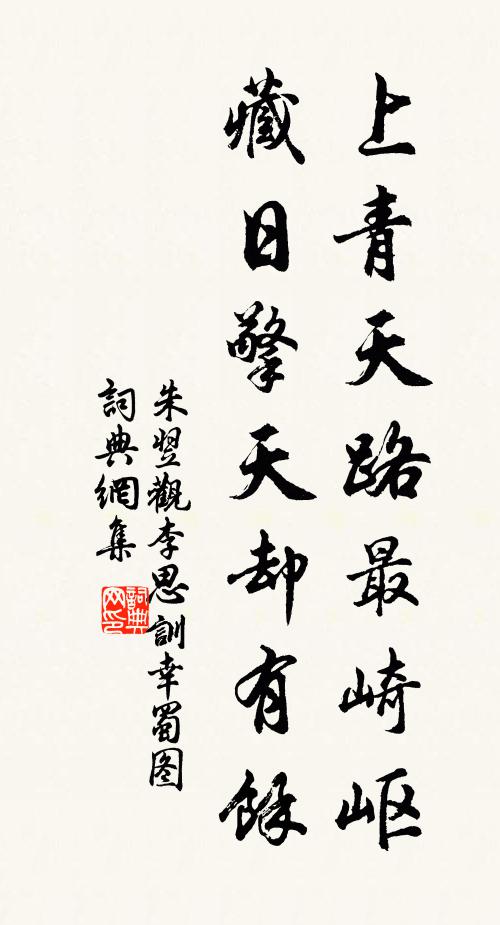 上青天路最崎岖
藏日擎天却有餘
朱翌觀李思訓幸蜀图
詞典網集
詞典网印